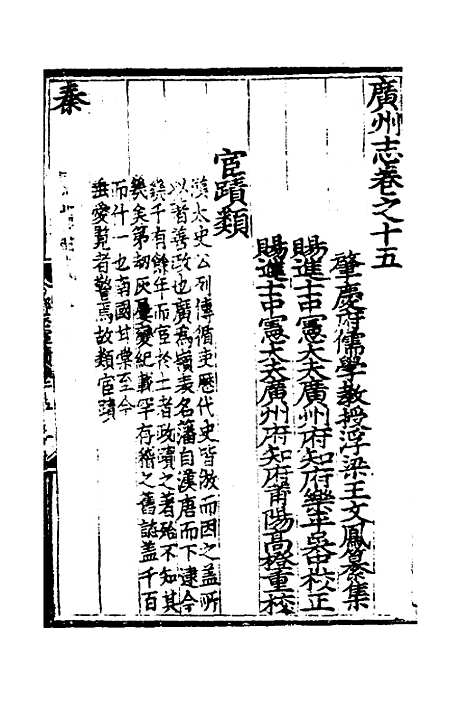 廣州志卷之十五
肇慶府儒學教授浮梁王文鳳纂集
賜進士中憲大夫廣州府知府樂平吳中校正
賜進士中憲大夫廣州府知府莆陽高橙重校
宦蹟類
漢太史公列傳循吏歷代史皆放而因之蓋所
以著善政也廣為嶺表名藩自漢唐而下逮今
幾千有餘年而宦於土者政蹟之著殆不知其
幾矣第刼灰屢變紀載罕存稽之舊誌盖千百
而什一也南國甘棠至今
垂愛覧者警焉故類宦蹟
秦